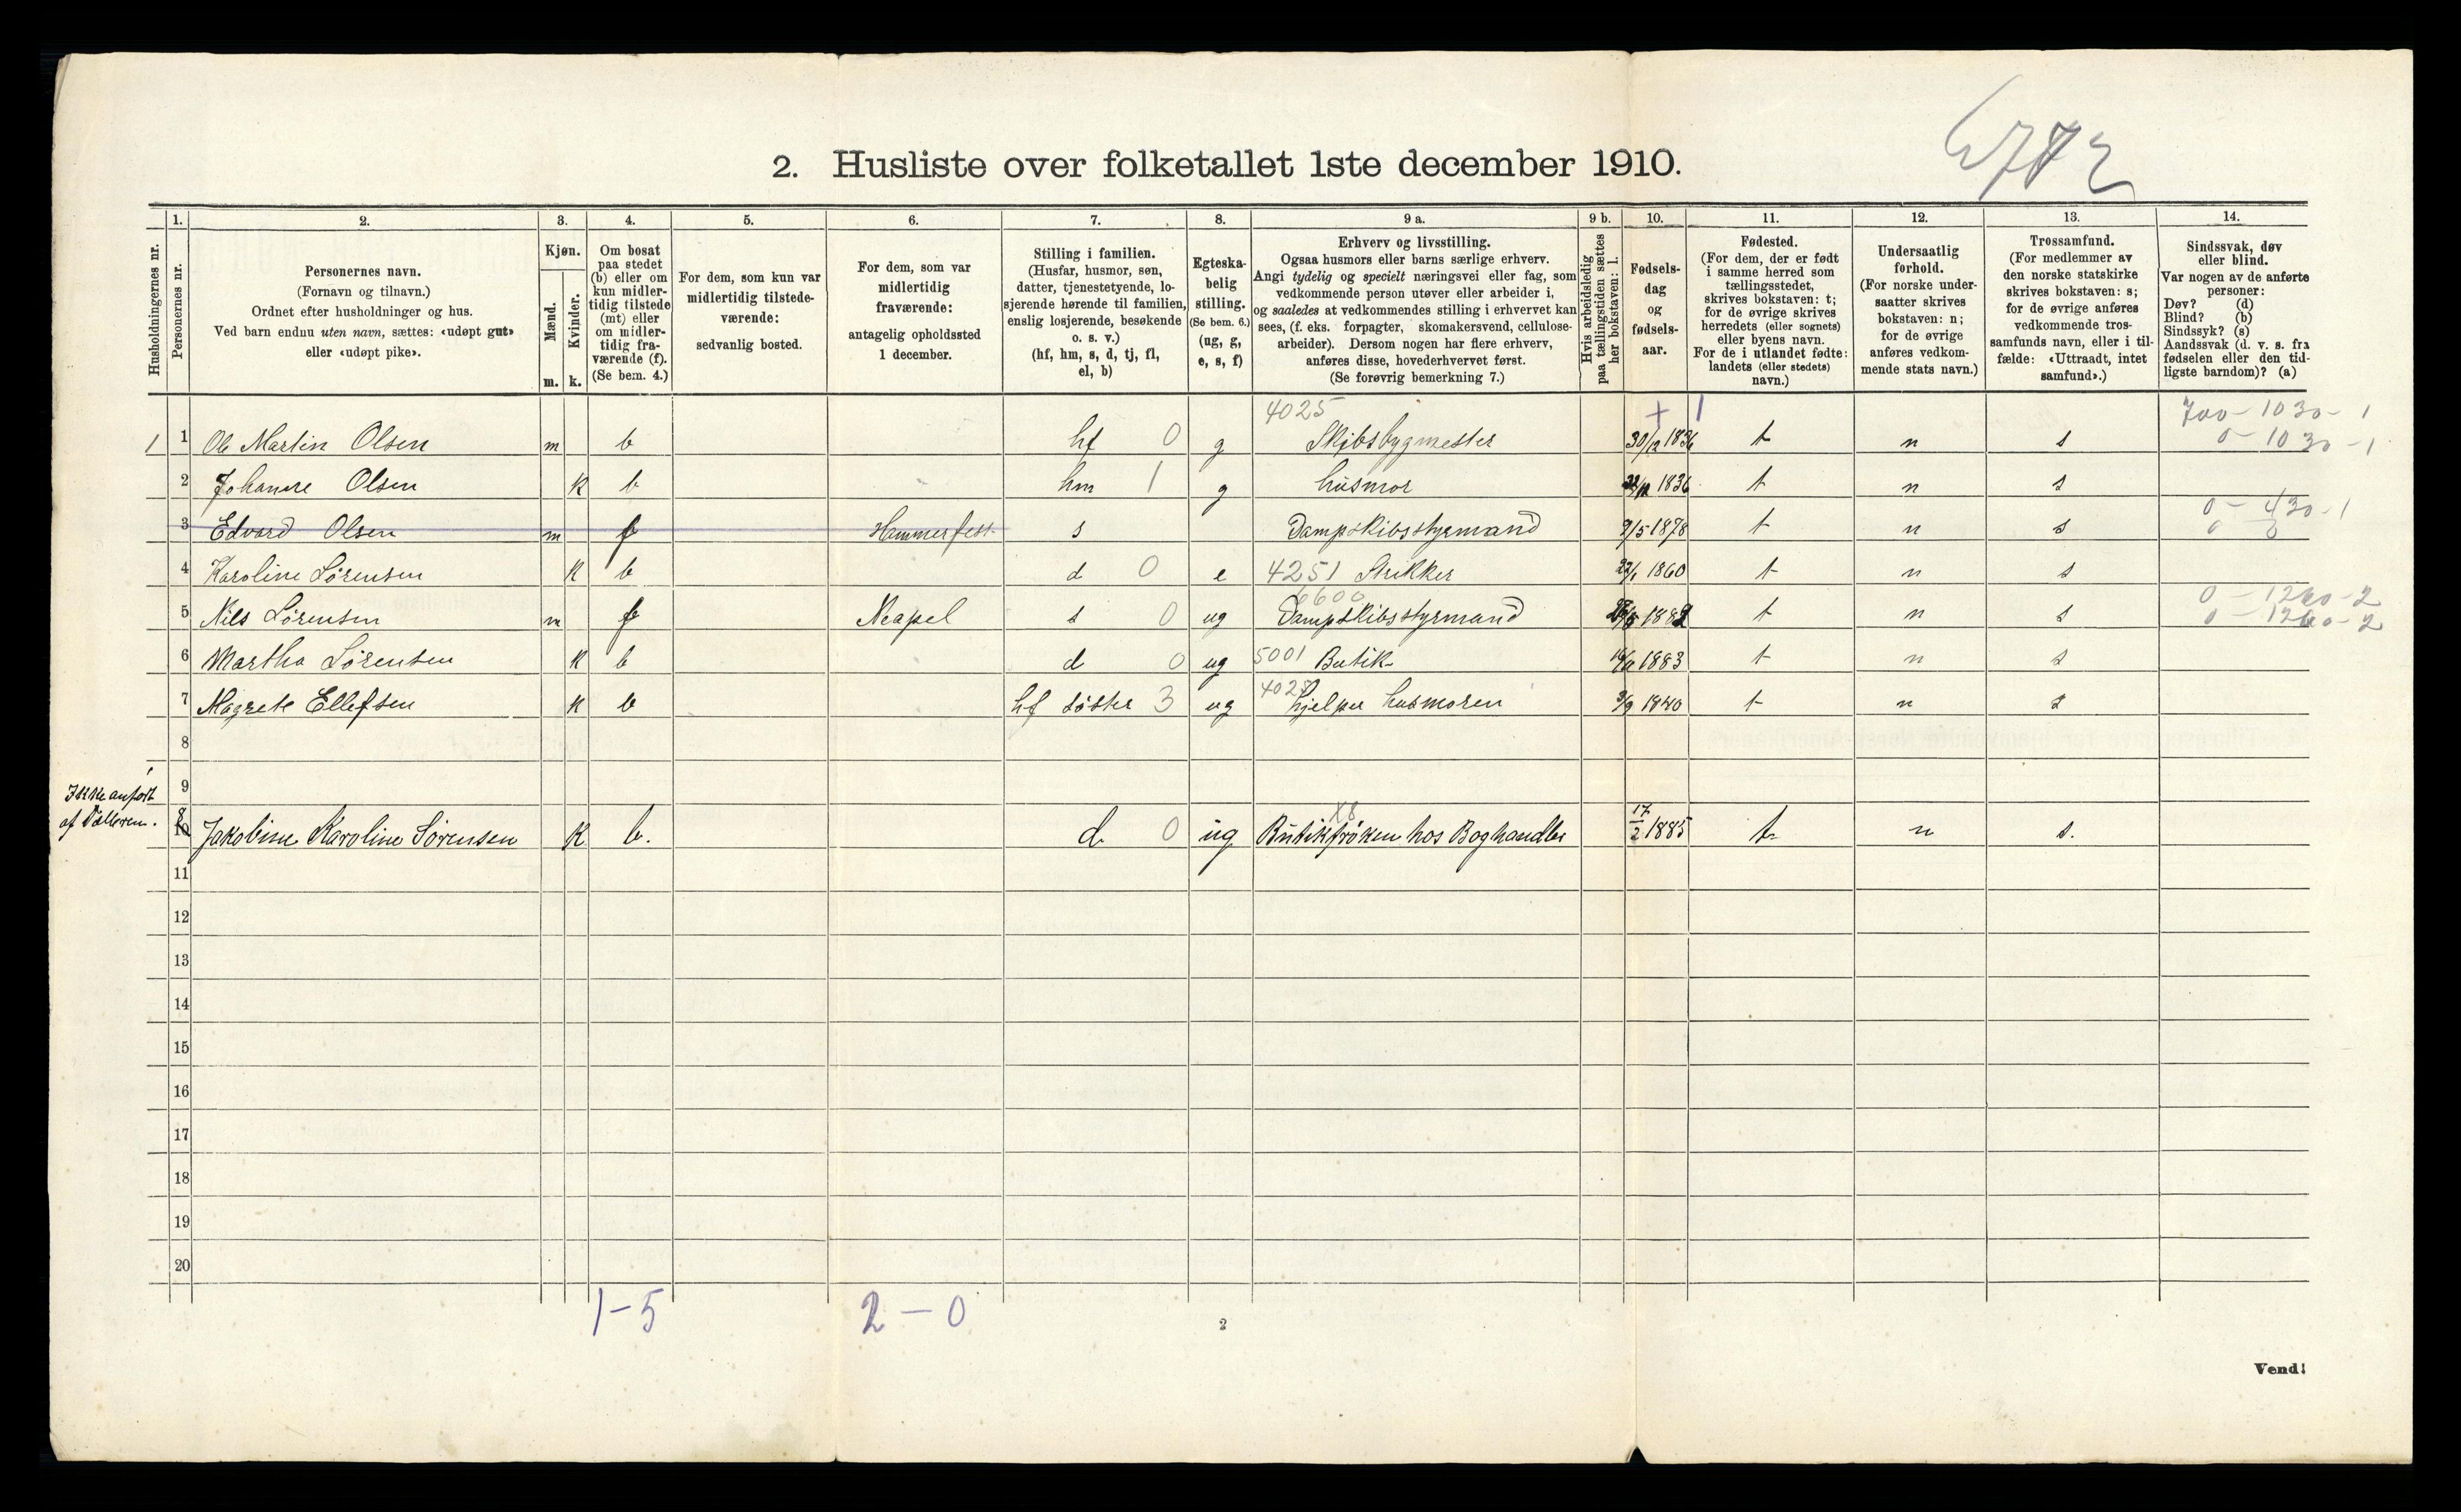 2. Husliste over folketallet 1ste december 1910.
1. 2. 3. 4. 5. 6. 7. 8. 9 a. 9 b. 10. 11. 12. 13. 14.
Husholdningernes nr.
Personernes nr.
Personernes navn.
(Fornavn og tilnavn.)
Ordnet efter husholdninger og hus.
Ved barn endnu uten navn, sættes: «udøpt gut»
eller «udøpt pike».
Kjøn.
Mænd.
Kvinder.
m. k.
Om bosat
paa stedet
(b) eller om
kun midler-
tidig tilstede
(mt) eller
om midler-
tidig fra-
værende (f).
(Se bem. 4.)
For dem, som kun var
midlertidig tilstede-
værende:
sedvanlig bosted.
For dem, som var
midlertidig
fraværende:
antagelig opholdssted
1 december.
Stilling i familien.
(Husfar, husmor, søn,
datter, tjenestetyende, lo-
sjerende hørende til familien,
enslig losjerende, besøkende
o. s. v.)
(hf, hm, s, d, tj, fl,
el, b)
Egteska-
belig
stilling.
(Se bem. 6.)
(ug, g,
e, s, f)
Erhverv og livsstilling.
Ogsaa husmors eller barns særlige erhverv.
Angi tydelig og specielt næringsvei eller fag, som
vedkommende person utøver eller arbeider i,
og saaledes at vedkommendes stilling i erhvervet kan
sees, (f. eks. forpagter, skomakersvend, cellulose-
arbeider). Dersom nogen har flere erhverv,
anføres disse, hovederhvervet først.
(Se forøvrig bemerkning 7.)
Hvis arbeidsledig
paa tællingstiden sættes
her bokstaven: l.
Fødsels-
dag
og
fødsels-
aar.
Fødested.
(For dem, der er født
i samme herred som
tællingsstedet,
skrives bokstaven: t;
for de øvrige skrives
herredets (eller sognets)
eller byens navn.
For de i utlandet fødte:
landets (eller stedets)
navn.)
Undersaatlig
forhold.
(For norske under-
saatter skrives
bokstaven: n;
for de øvrige
anføres vedkom-
mende stats navn.)
Trossamfund.
(For medlemmer av
den norske statskirke
skrives bokstaven: s;
for de øvrige anføres
vedkommende tros-
samfunds navn, eller i til-
fælde: «Uttraadt, intet
samfund».)
Sindssvak, døv
eller blind.
Var nogen av de anførte
personer:
Døv? (d)
Blind? (b)
Sindssyk? (s)
Aandssvak (d. v. s. fra
fødselen eller den tid-
ligste barndom)? (a)
4025 + 1 700 - 1030 - 1
1 1 Ole Martin Olsen m b hf 0 g Skibsbygmester 30/12 1836 t n s 0 - 1030 - 1
2 Johanne Olsen k b hm 1 g husmor 1836 t n s
3 Edvard Olsen m f Hammerfest s Dampskibsstyrmand 9/5 1878 t n s 0 - 430 - 1
4 Karoline Sørensen k b d 0 e 4251 Strikker 22/1 1860 t n s
6600 0 - 1260 - 2
5 Nils Sørensen m f Neapel s 0 ug Dampskibsstyrmand 1882 t n s 0 - 1260 - 2
6 Martha Sørensen k b d 0 ug 5001 Butik 1883 t n s
7 Magrete Ellefsen k b hf søster 3 ug 4025 hjelper husmoren 3/9 1840 t n s
8
9
Ikke anført
af Tælleren.
X8
8 10 Jakobine Karoline Sørensen k b. d 0 ug Butikfrøken hos Boghandler 17/2 1885 t n s.
11
12
13
14
15
16
17
18
19
20
1-5 2-0
2
Vend!